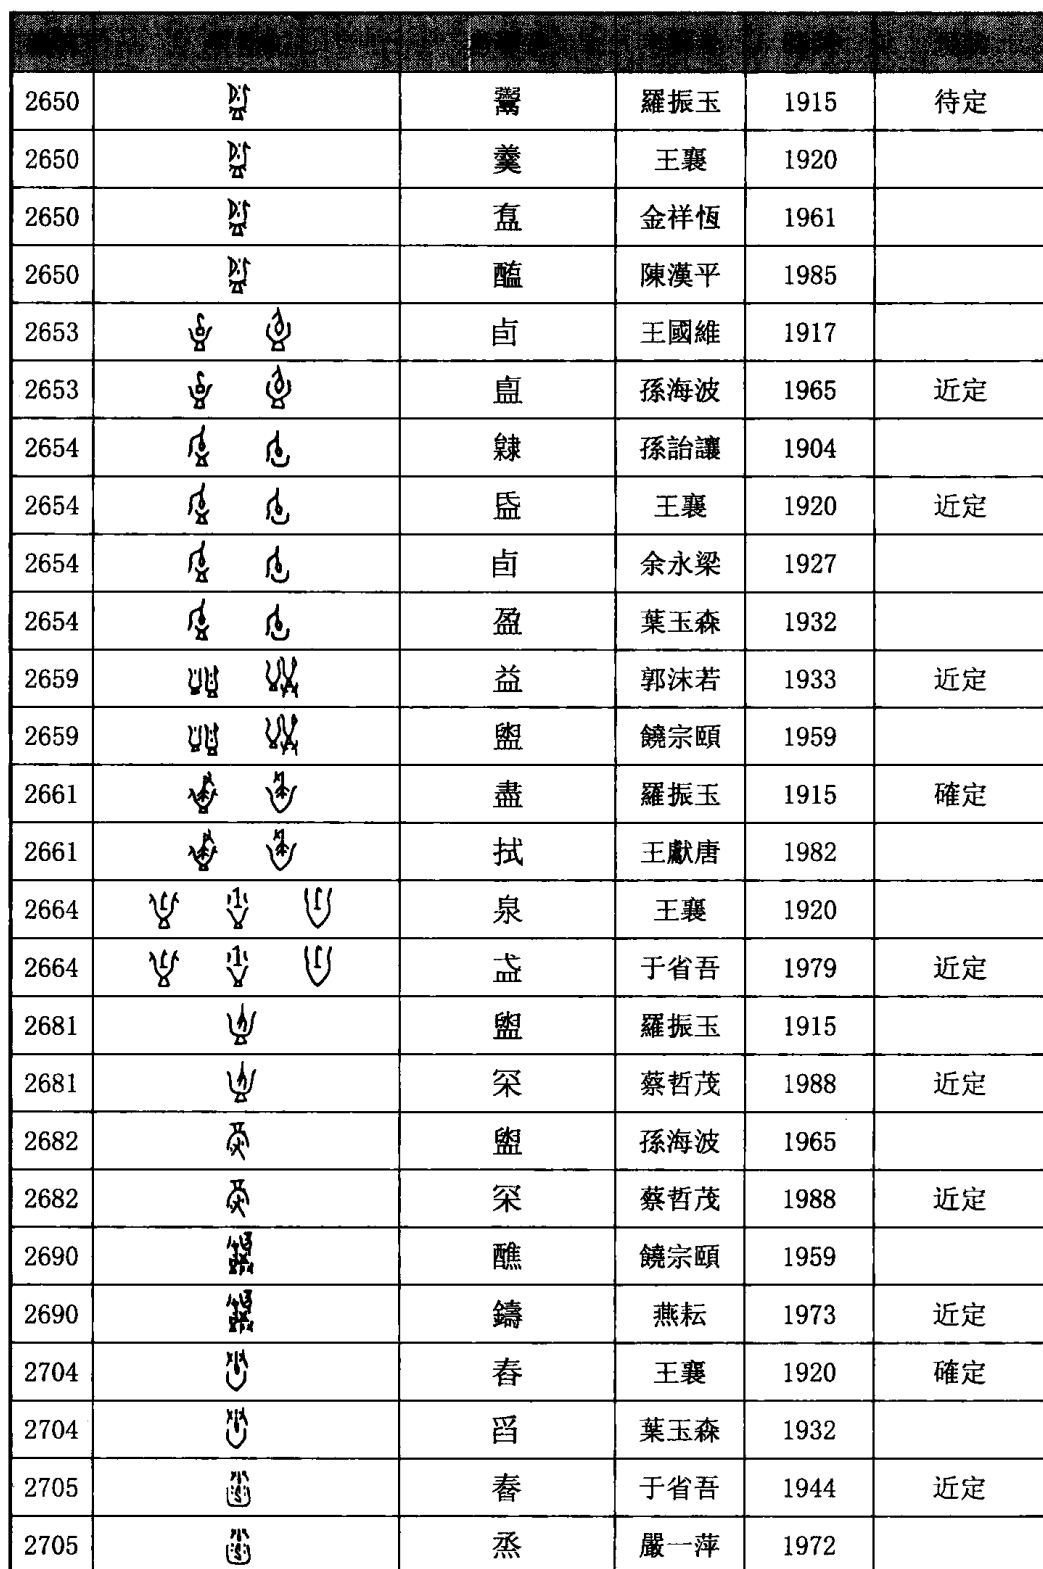 2650 羅振玉 1915 待定
2650 羹 王襄 1920
2650 金祥恆 1961
2650 醢 陳漢平 1985
2653 卣 王國維 1917
2653 孫海波 1965 近定
2654 隸 孫詒讓 1904
2654 王襄 1920 近定
2654 卣 余永梁 1927
2654 盈 葉玉森 1932
2659 益 郭沫若 1933 近定
2659 盥 饒宗頤 1959
2661 盡 羅振玉 1915 確定
2661 拭 王獻唐 1982
2664 泉 王襄 1920
2664 于省吾 1979 近定
2681 盥 羅振玉 1915
2681 罙 蔡哲茂 1988 近定
2682 盥 孫海波 1965
2682 罙 蔡哲茂 1988 近定
2690 醮 饒宗頤 1959
2690 鑄 燕耘 1973 近定
2704 舂 王襄 1920 確定
2704 舀 葉玉森 1932
2705 于省吾 1944 近定
2705 烝 嚴一萍 1972